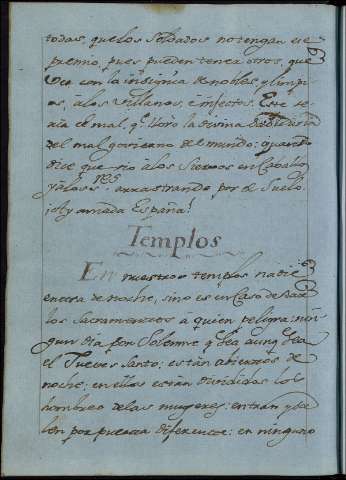 todas, que los Soldados no tengan ese
premio, pues pueden tener otros, que
vea con la insignia de nobles, y limpi-
os, à los villanos, è infectos. Este se-
ria el mal, q.e lloró la divina Sabiduria
del mal govierno del mundo: quando
dice que vio à los Siervos en Caballos
y à los S.res arrastrando por el Suelo.
¡Ay amada España!
Templos
En nuestros templos nadie
entra de noche, sino es en Caso de dar
los Sacramentos à quien peligra: nin-
gun dia por Solemne q.e sea aunq.e sea
el Jueves Santo: estàn abiertos de
noche: en ellos estan divididos los
hombres de las mugeres: entran y sa-
len por puerta diferente: en ninguno